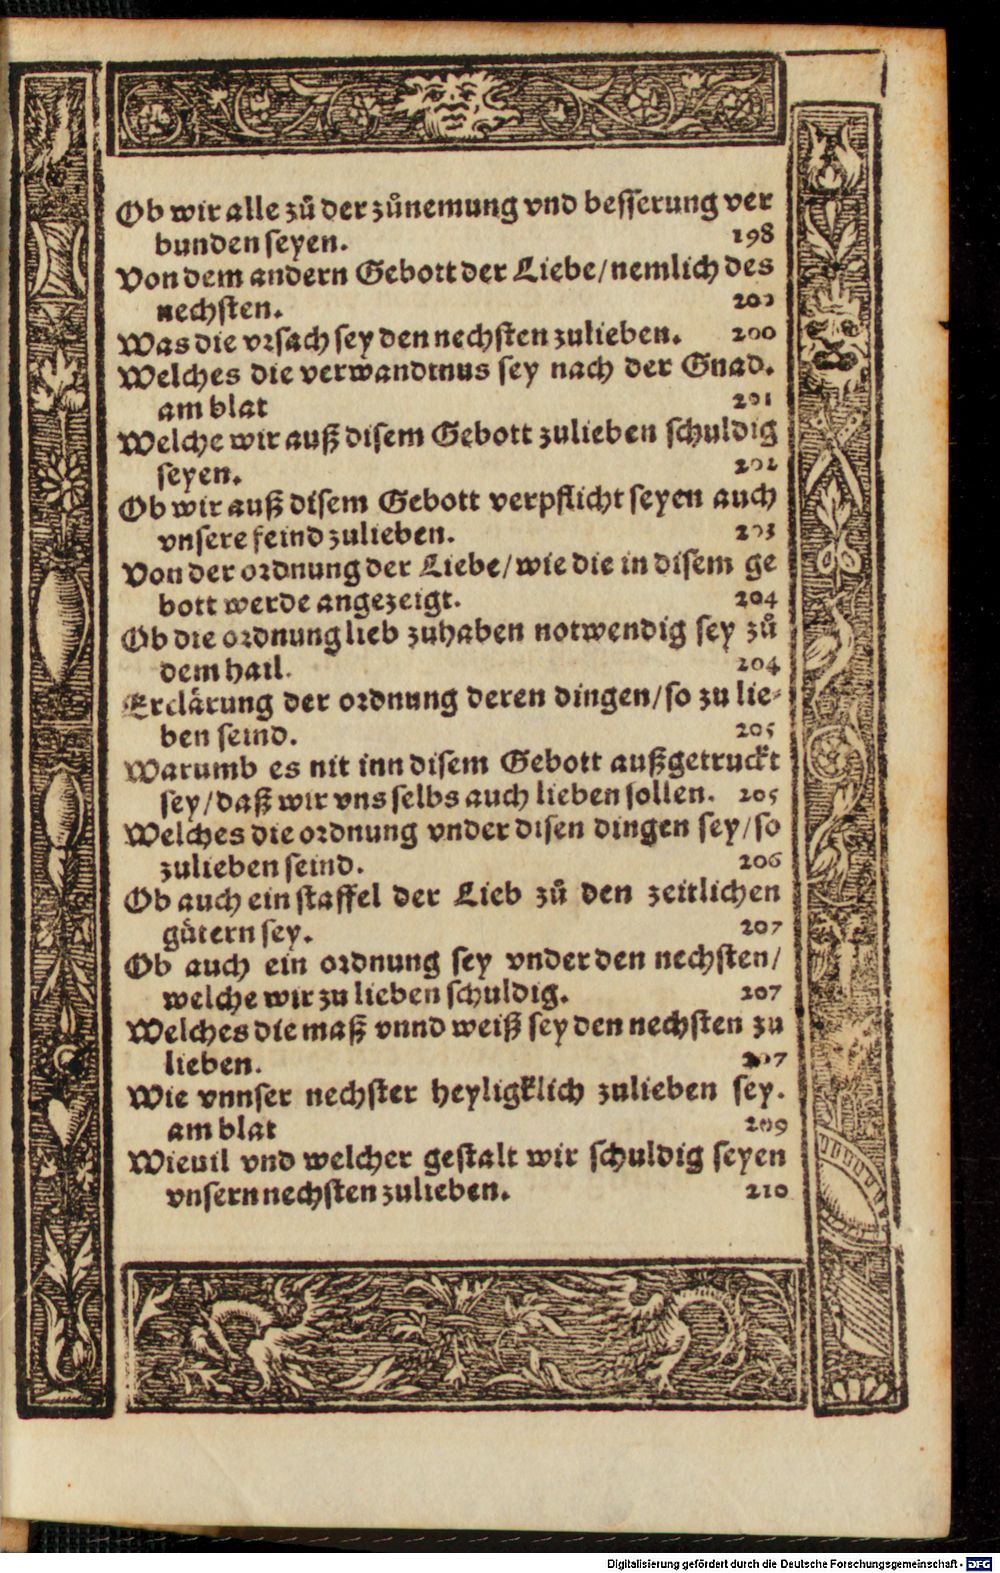 Ob wir alle zů der zůnemung vnd besserung ver
bunden seyen. 198
Von dem andern Gebott der Liebe/nemlich des
nechsten. 200
Was die vrsach sey den nechsten zulieben. 200
Welches die verwandtnus sey nach der Gnad.
am blat 201
Welche wir auß disem Gebott zulieben schuldig
seyen. 202
Ob wir auß disem Gebott verpflicht seyen auch
vnsere feind zulieben. 203
Von der ordnung der Liebe/wie die in disem ge
bott werde angezeigt. 204
Ob die ordnung lieb zuhaben notwendig sey zů
dem hail. 204
Erclärung der ordnung deren dingen/so zu lie-
ben seind. 205
Warumb es nit inn disem Gebott außgetruckt
sey/daß wir vns selbs auch lieben sollen. 205
Welches die ordnung vnder disen dingen sey/so
zulieben seind. 206
Ob auch ein staffel der Lieb zů den zeitlichen
gütern sey. 207
Ob auch ein ordnung sey vnder den nechsten/
welche wir zu lieben schuldig. 207
Welches die maß vnnd weiß sey den nechsten zu
lieben. 207
Wie vnnser nechster heyligklich zulieben sey.
am blat 209
Wieuil vnd welcher gestalt wir schuldig seyen
vnsern nechsten zulieben. 210
Digitalisierung gefördert durch die Deutsche Forschungsgemeinschaft - DFG